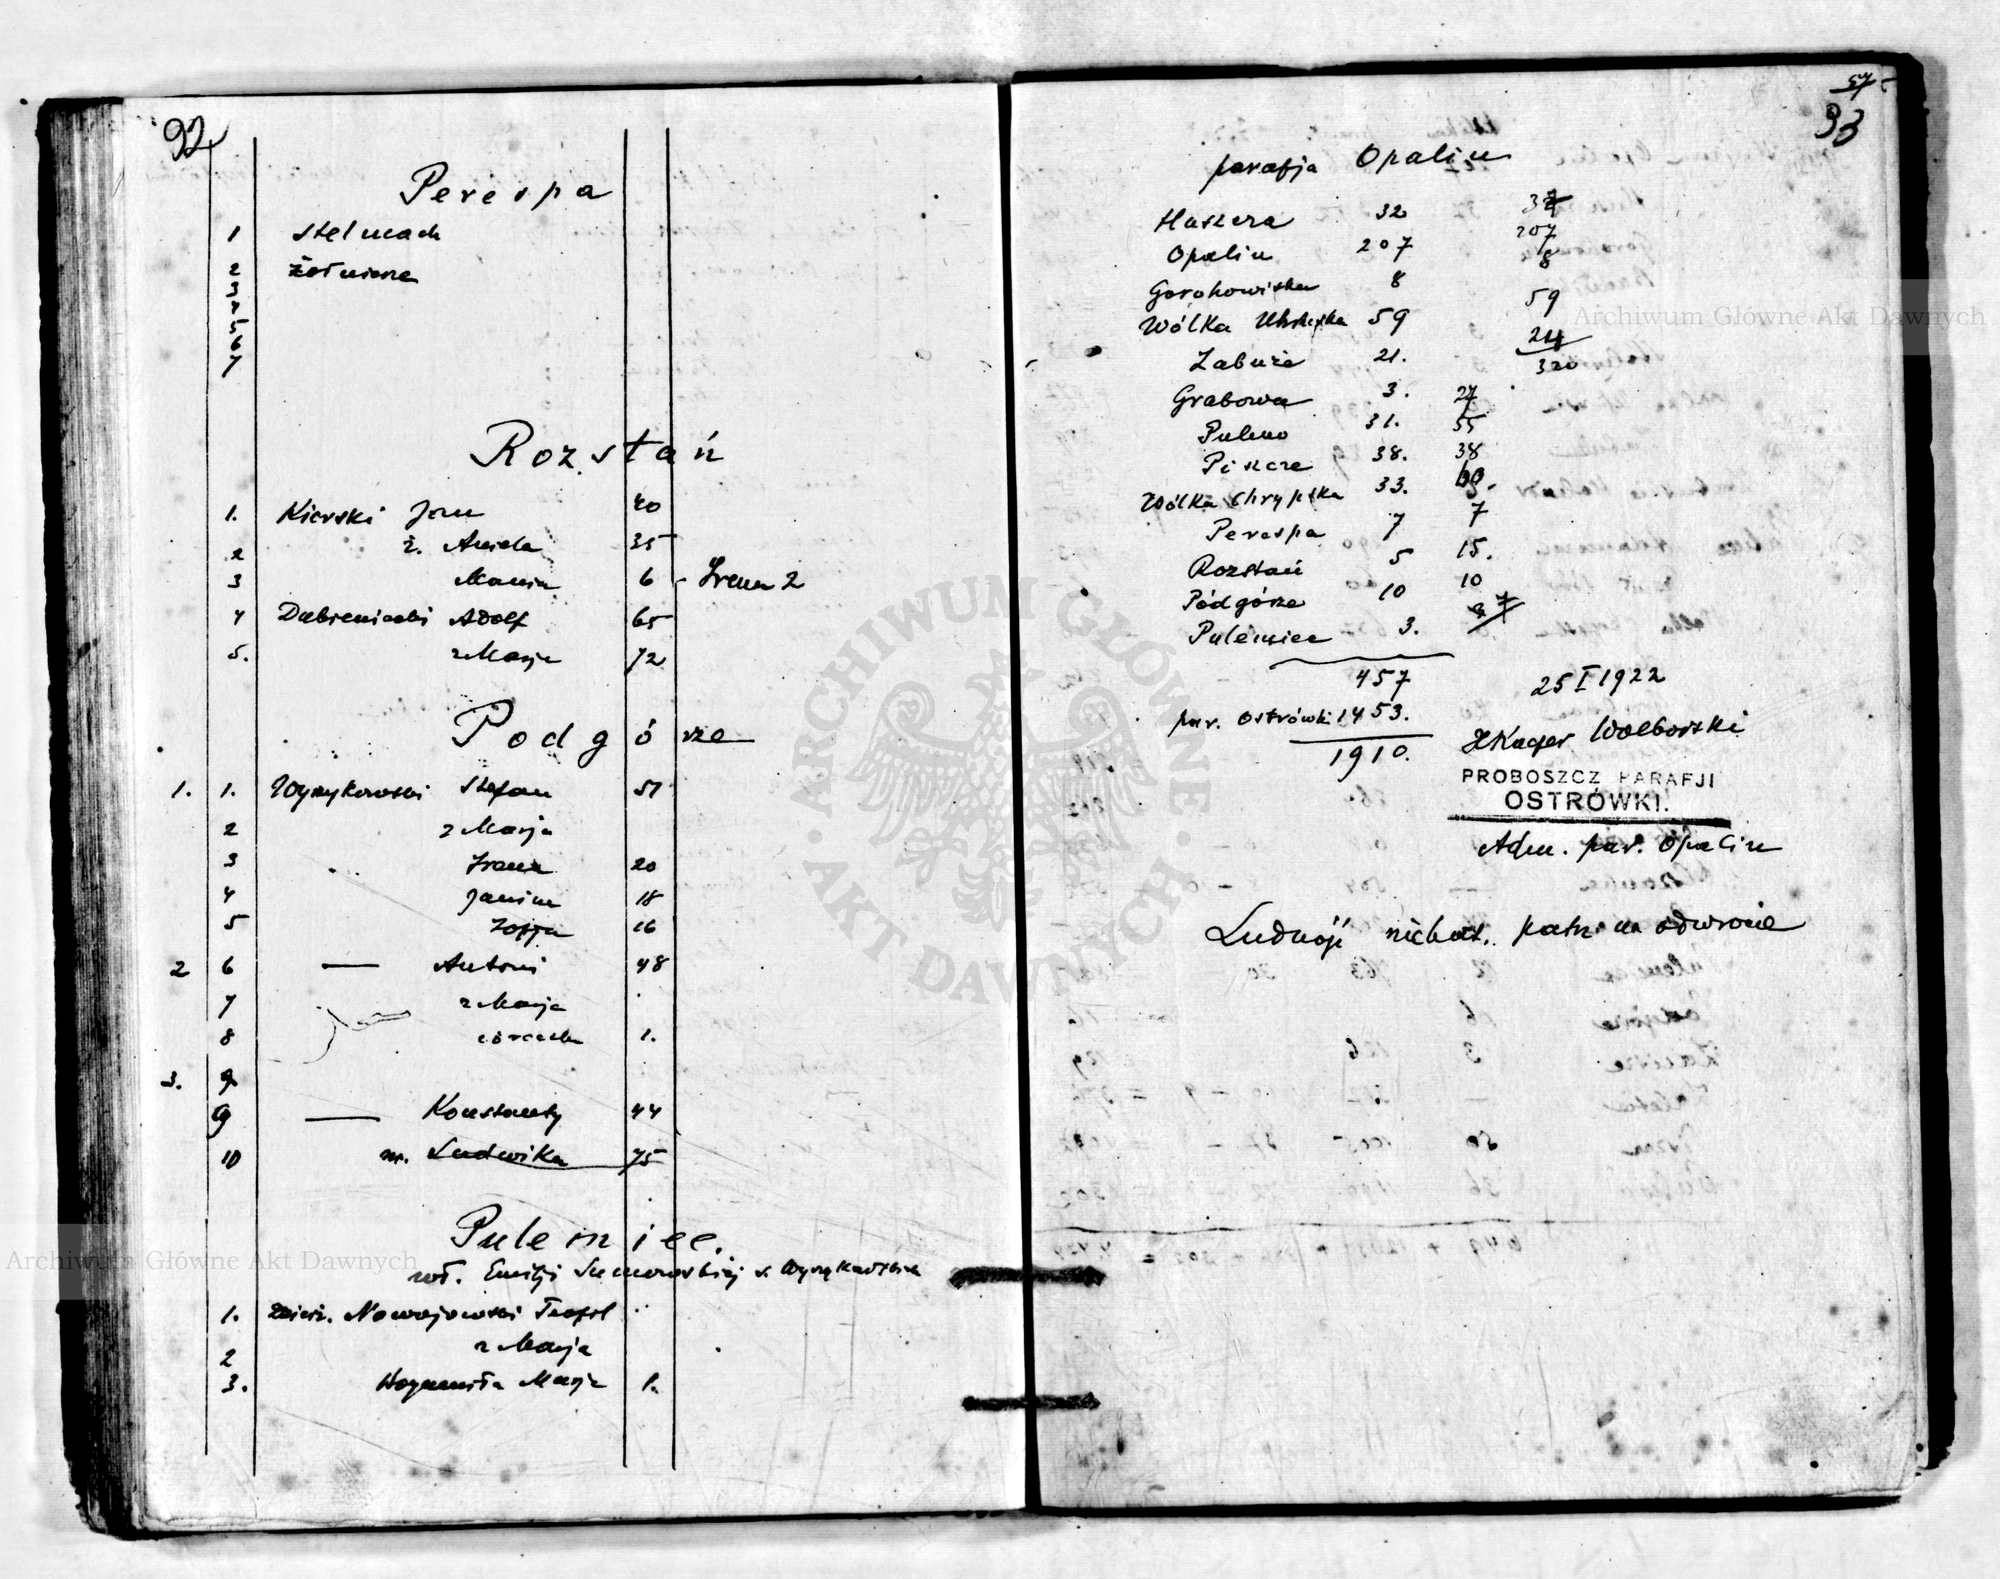 92
Perespa
1 Stelmach
2 Żołnierze
3
4
5
6
7
Rozstań
1. Kierski Jan 40
2 ż. Aniela 35
3 Mania 6 - Irena 2
4 Adolf 65
5. ż Marja 72
Podgórze
1. 1. Wyrzykowski Stefan 51
2 ż Marja
3 Irena 20
4 Janina 18
5 Zofja 16
2 6 — Antoni 48
7 ż Marja
8 córeczka 1.
3. 9
9 — Konstanty 44
10 m. Ludwika 75
Pulemiec.
wł. Emilji z Wyrzykowskich
1. dzierż. Nowojowski Teofil
2 ż Marja
3. Marja 1.
57
93
parafja Opalin
Huszcza 32 32
Opalin 207 207
Gorohowiska 8 8
Wólka Uhruska 59 59
Zabuże 21. 21
320
Grabowa 3. 27
Pulmo 31. 55
Piszcze 38. 38
Wólka Chrypska 33.
Perespa 7 7
Rozstań 5 15.
Podgórze 10 10
Pulemiec 3.
457
par. Ostrówki 1453.
1910.
25 I 1922
XKacper Wolborski
PROBOSZCZ PARAFJI
OSTRÓWKI.
Adm. par. Opalin
Ludność niekat. patrz na odwrocie
Archiwum Główne Akt Dawnych
Archiwum Główne Akt Dawnych
ARCHIWUM GŁÓWNE
AKT DAWNYCH